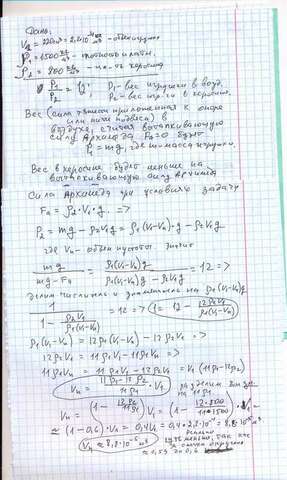 Дано:
V₁ = 220 см³ = 2,2·10⁻⁴ м³ - объём игрушки
ρ₁ = 1500 кг/м³ - плотность
ρ₂ = 800 кг/м³ - пл-ть керосина
P₁/P₂ = 12; P₁ - вес игрушки в возд.
P₂ - вес игр-ки в керосине.
Вес (сила приложенная к опоре
или нити подвеса) в
воздухе, считая выталкивающую
силу Архимеда Fa=0 будет
P₁ = mg, где m-масса игрушки.
Вес в керосине будет меньше на
выталкивающую силу Архимеда
Сила Архимеда при условиях задачи
Fa = ρ₂·V₁·g =>
P₂ = mg - ρ₂V₁g = ρ₁(V₁-Vn)·g - ρ₂V₁g
где Vn - объем пустоты. Значит
mg / (mg - Fa) = ρ₁(V₁-Vn)g / (ρ₁(V₁-Vn)g - ρ₂V₁g) = 12 =>
Делим числитель и знаменатель на ρ₁(V₁-Vn)g
1 / (1 - ρ₂V₁/ρ₁(V₁-Vn)) = 12 => 1 = 12 - 12ρ₂V₁/ρ₁(V₁-Vn)
ρ₁(V₁-Vn) = 12ρ₁(V₁-Vn) - 12ρ₂V₁ =>
12ρ₂V₁ = 11ρ₁V₁ - 11ρ₁Vn =>
11ρ₁Vn = 11ρ₁V₁ - 12ρ₂V₁ = V₁(11ρ₁-12ρ₂)
Vn = (11ρ₁ - 12ρ₂)/11ρ₁ · V₁
Vn = (1 - 12ρ₂/11ρ₁) V₁ = (1 - 12·800/11·1500) · V₁ =
≈ (1 - 0,6)·V₁ = 0,4V₁ = 0,4·2,2·10⁻⁴ = 8,8·10⁻⁵ м³
Vn ≈ 8,8·10⁻⁵ м³
≈ 0,59 до 0,6